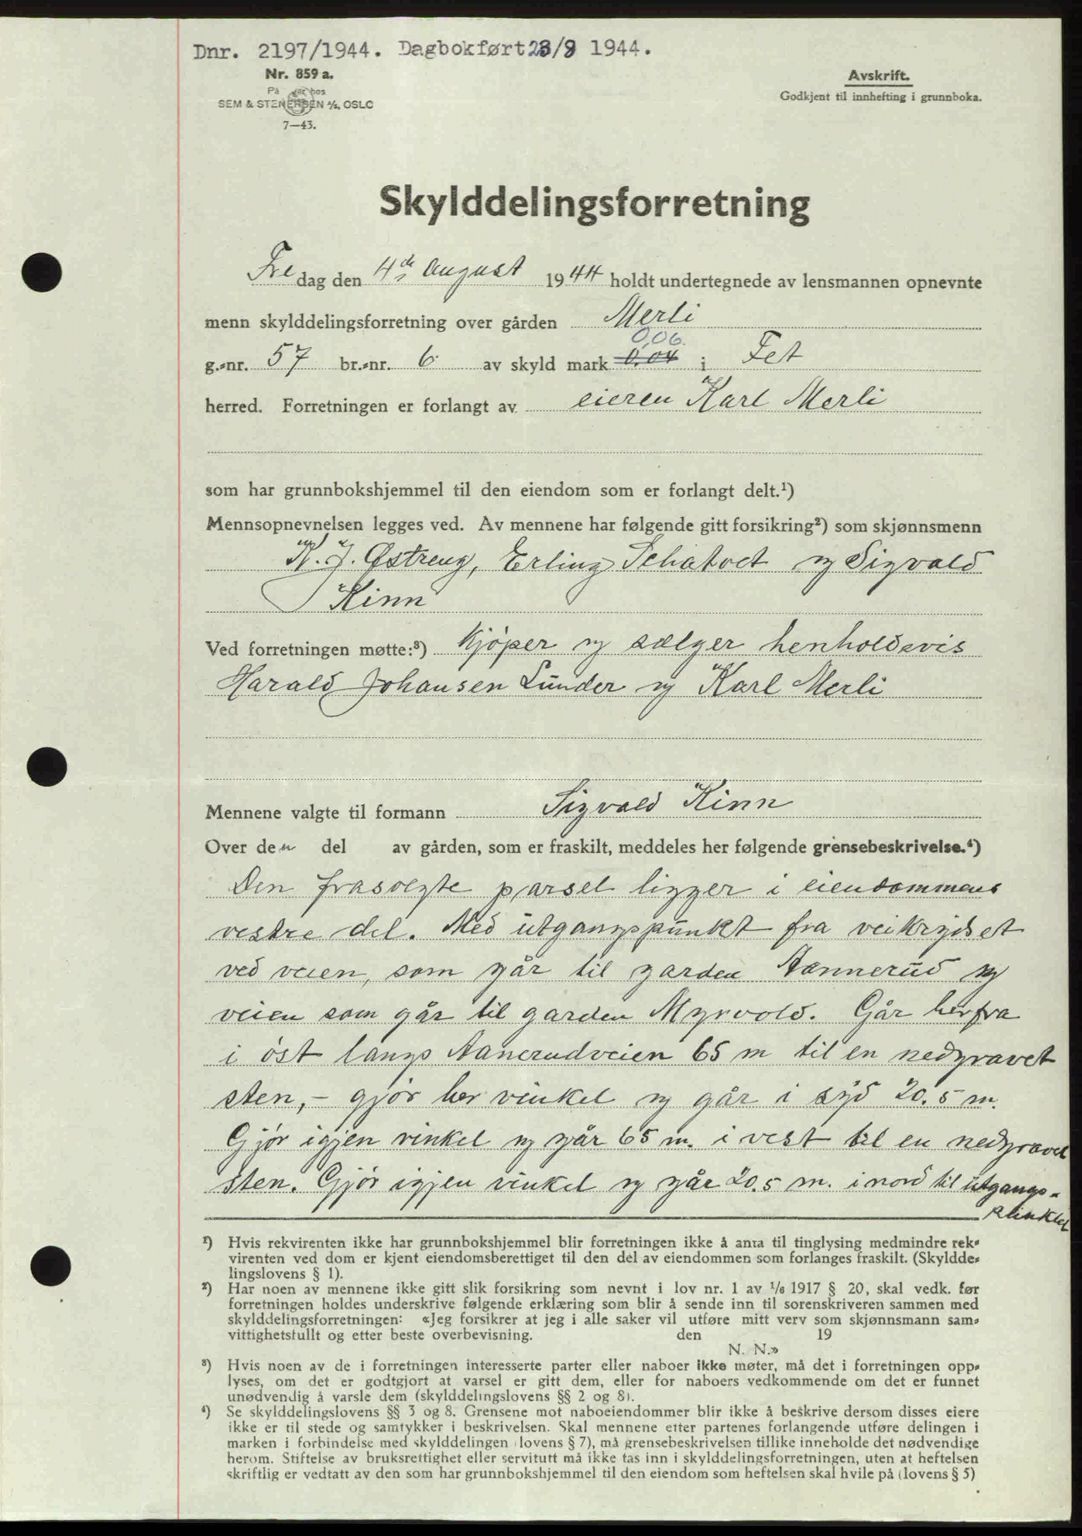 Dnr. 2197/1944. Dagbokført 28/9 1944.
Nr. 859 a.
SEM & STENERSEN A/S, OSLO
7—43.
Avskrift.
Godkjent til innhefting i grunnboka.
Skylddelingsforretning
Fredag den 4de august 1944 holdt undertegnede av lensmannen opnevnte
menn skylddelingsforretning over gården Merli
0,06.
g.-nr. 57 br.-nr. 6. av skyld mark 0,04 i Fet
herred. Forretningen er forlangt av eieren Karl Merli
som har grunnbokshjemmel til den eiendom som er forlangt delt.¹)
Mennsopnevnelsen legges ved. Av mennene har følgende gitt forsikring²) som skjønnsmenn
K. J. Østreng, Erling Schatvet og Sigvald
Kinn
Ved forretningen møtte:³) Kjøper og sælger henholdsvis
Harald Johansen Lunder og Karl Merli
Mennene valgte til formann Sigvald Kinn
Over den del av gården, som er fraskilt, meddeles her følgende grensebeskrivelse.⁴)
Den frasolgte parsel ligger i eiendommens
vestre del. Med utgangspunkt fra veikrydset
ved veien, som går til garden Aannerud og
veien som går til garden Myrvold. Går herfra
i øst langs Aanerudveien 65 m til en nedgravet
sten, - gjør her vinkel og går i syd 20.5 m.
Gjør igjen vinkel og går 65 m. i vest til en nedgravet
sten. Gjør igjen vinkel og går 20.5 m. i nord til utgangs-
punktet
¹) Hvis rekvirenten ikke har grunnbokshjemmel blir forretningen ikke å anta til tinglysing medmindre rek-
virenten ved dom er kjent eiendomsberettiget til den del av eiendommen som forlanges fraskilt. (Skyldde-
lingslovens § 1).
²) Har noen av mennene ikke gitt slik forsikring som nevnt i lov nr. 1 av 1/6 1917 § 20, skal vedk. før
forretningen holdes underskrive følgende erklæring som blir å sende inn til sorenskriveren sammen med
skylddelingsforretningen: «Jeg forsikrer at jeg i alle saker vil utføre mitt verv som skjønnsmann sam-
vittighetsfullt og etter beste overbevisning. den 19
N. N.»
³) Hvis noen av de i forretningen interesserte parter eller naboer ikke møter, må det i forretningen opp-
lyses, om det er godtgjort at varsel er gitt dem, eller for naboers vedkommende om det er funnet
unødvendig å varsle dem (skylddelingslovens §§ 2 og 8).
⁴) Se skylddelingslovens §§ 3 og 8. Grensene mot naboeiendommer blir ikke å beskrive dersom disses eiere
ikke er til stede og samtykker i beskrivelsen. Skal mennene etter partenes forlangende utføre delingen i
marken i forbindelse med skylddelingen (lovens § 7), må grensebeskrivelsen tillike inneholde det nødvendige
herom. Stiftelse av bruksrettighet eller servitutt må ikke tas inn i skylddelingsforretningen, uten at heftelsen
skriftlig er vedtatt av den som har grunnbokshjemmel til den eiendom som heftelsen skal hvile på (lovens § 5)